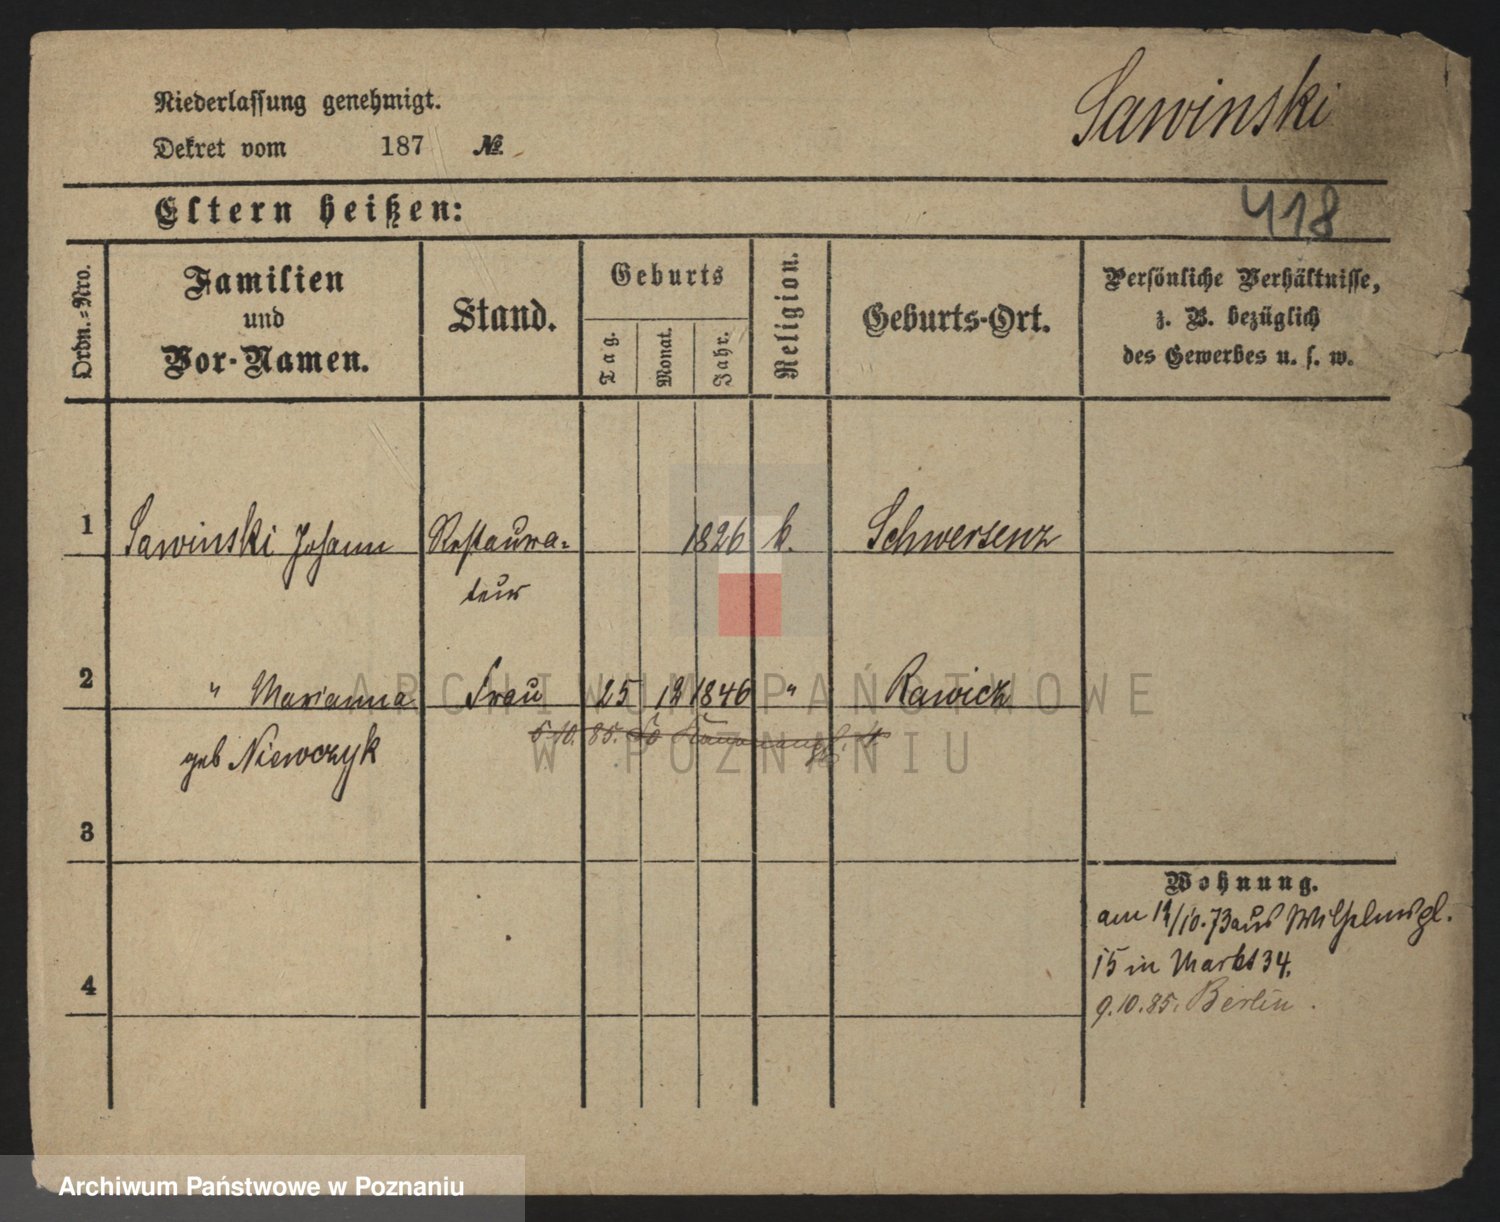 Niederlassung genehmigt.
Dekret vom 187 №.
Sawinski
Eltern heißen:
418
Ordn.=Nro.
Familien
und
Vor-Namen.
Stand.
Geburts
Tag.
Monat.
Jahr.
Religion.
Geburts-Ort.
Persönliche Verhältnisse,
z. B. bezüglich
des Gewerbes u. s. w.
1 Sawinski Johann Restaura= 1826 k. Schwersenz
teur
2 " Marianna Frau 25 12 1846 " Rawicz
geb Niewczyk
5 10. 85.
3
Wohnung.
am 12/10.73 aus Wilhelmspl.
15 in Markt 34.
4
9.10.85. Berlin.
ARCHIWUM PAŃSTWOWE
W POZNANIU
Archiwum Państwowe w Poznaniu